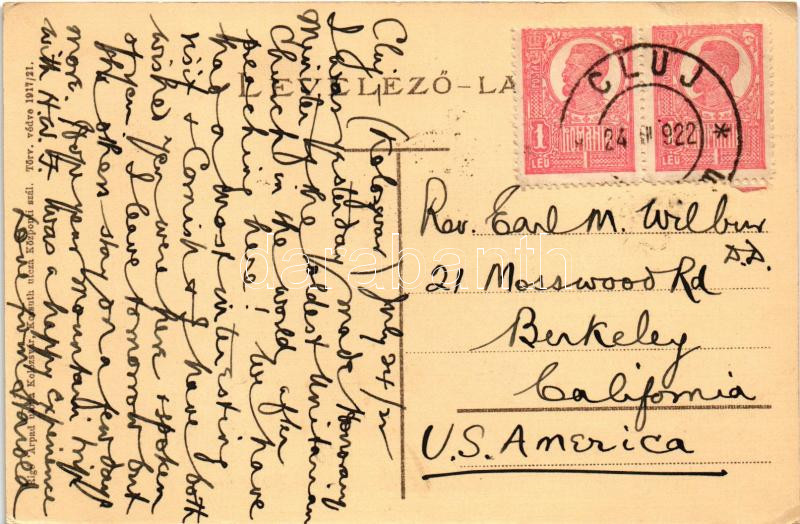 Cluj (Kolozsvar) July 24/22
I was yesterday made Honorary
Minister of the oldest Unitarian
Church in the world, after
preaching here! We have
had a most interesting
visit & Cornish & I have both
wished you were here & spoken
of you. I leave tomorrow but
the others stay on a few days
more. Hope your mountain trip
with H.W.F. was a happy experience
Love from
LEVELEZŐ-LA
1 LEU ROMANIA 1
ROMANIA 1 LEU
CLUJ
24 922
*
Rev. Earl M. Wilbur
D.D.
21 Mosswood Rd
Berkeley
California
U.S. America
Árpád Kolozsvár, Kossuth utcza Központi szál. Törv. védve 1917/21.
darabanth